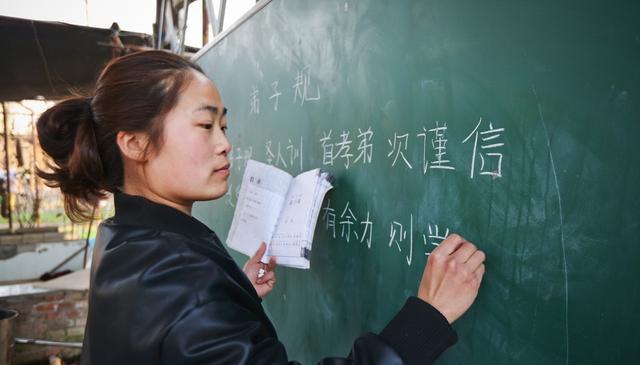 弟子规
圣人训 首孝弟 次谨信
有余力 则学